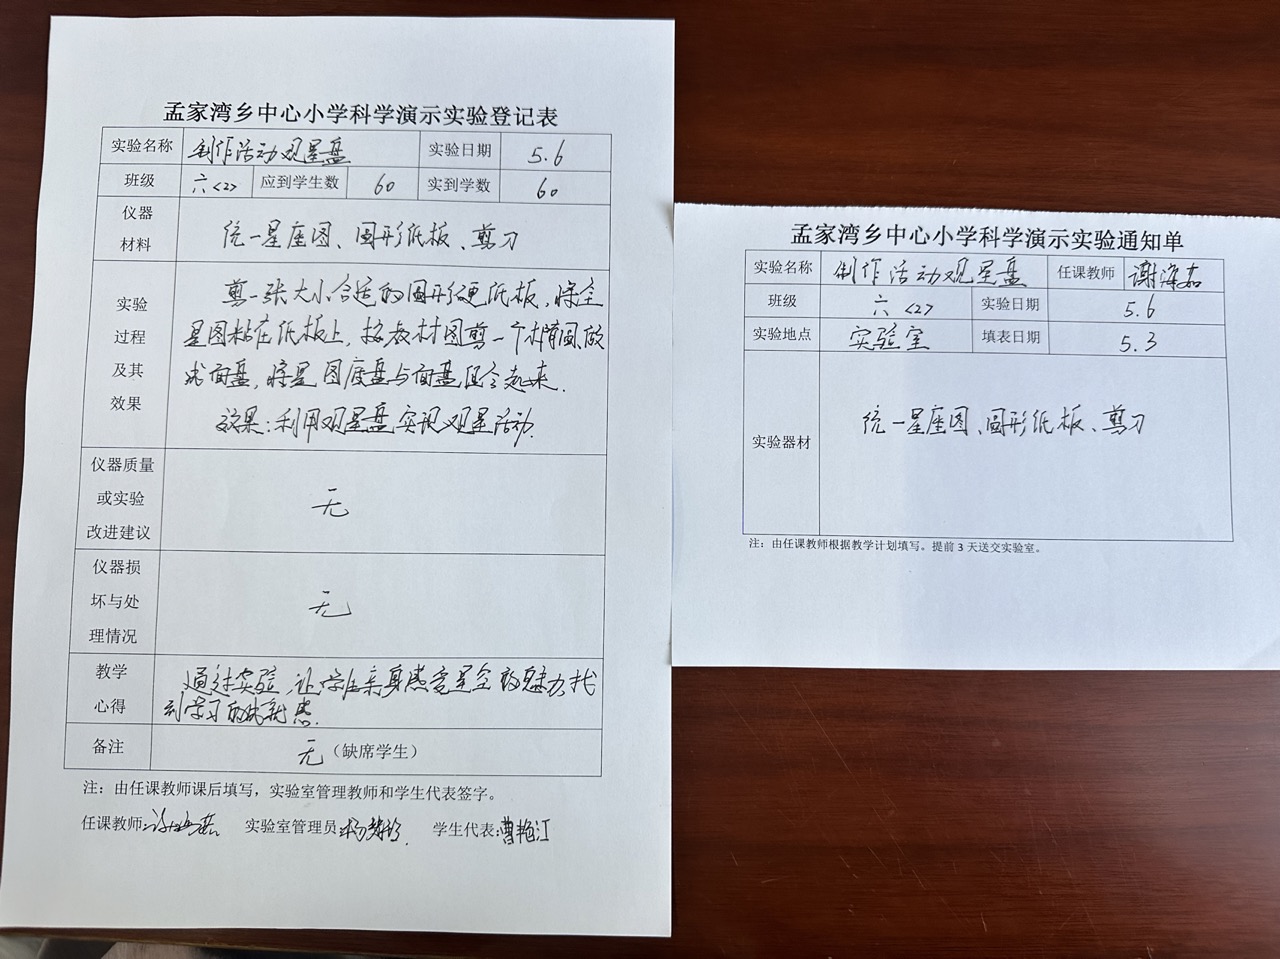 孟家湾乡中心小学科学演示实验登记表
实验名称 制作活动观星盘 实验日期 5.6
班级 六<2> 应到学生数 60 实到学数 60
仪器
材料
统一星座图、圆形纸板、剪刀
实验
过程
及其
效果
剪一张大小合适的圆形硬纸板,将全
星图粘在纸板上,按教材图剪一个椭圆做
成面盘,将星图底盘与面盘组合起来.
效果:利用观星盘实现观星活动.
仪器质量
或实验
改进建议
无
仪器损
坏与处
理情况
无
教学
心得
通过实验,让学生亲身感受星空的魅力,找
到学习的成就感.
备注 无(缺席学生)
注:由任课教师课后填写,实验室管理教师和学生代表签字。
任课教师: 实验室管理员: 学生代表:曹艳江
孟家湾乡中心小学科学演示实验通知单
实验名称 制作活动观星盘 任课教师 谢海茹
班级 六<2> 实验日期 5.6
实验地点 实验室 填表日期 5.3
实验器材 统一星座图、圆形纸板、剪刀
注:由任课教师根据教学计划填写。提前3天送交实验室。